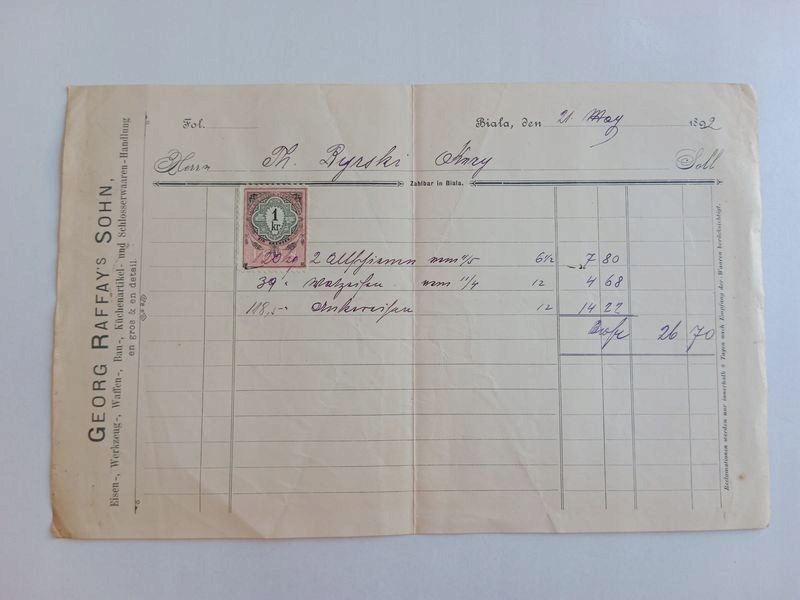 GEORG RAFFAY'S SOHN,
Eisen-, Werkzeug-, Waffen-, Bau-, Küchenartikel- und Schlosserwaaren-Handlung
en gros & en detail.
Fol.
Biala, den 21 May 1892
Herrn Th. Byrski Soll
Zahlbar in Biala.
1 kr
120 2 vom 9/5 6½ 7 80
39 " vom 11/4 12 4 68
118,5 " Ankereisen 12 14 22
26 70
Reclamationen werden nur innerhalb 8 Tagen nach Empfang der Waaren berücksichtigt.